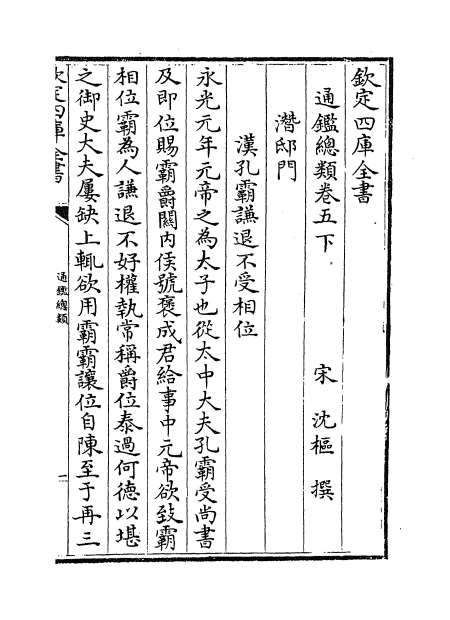 欽定四庫全書
通鑑總類卷五下
宋 沈樞 撰
潛邸門
漢孔霸謙退不受相位
永光元年元帝之為太子也從太中大夫孔霸受尚書
及即位賜霸爵關內侯號褒成君給事中元帝欲致霸
相位霸為人謙退不好權埶常稱爵位泰過何德以堪
之御史大夫屢缺上輒欲用霸霸讓位自陳至于再三
欽定四庫全書
通鑑總類